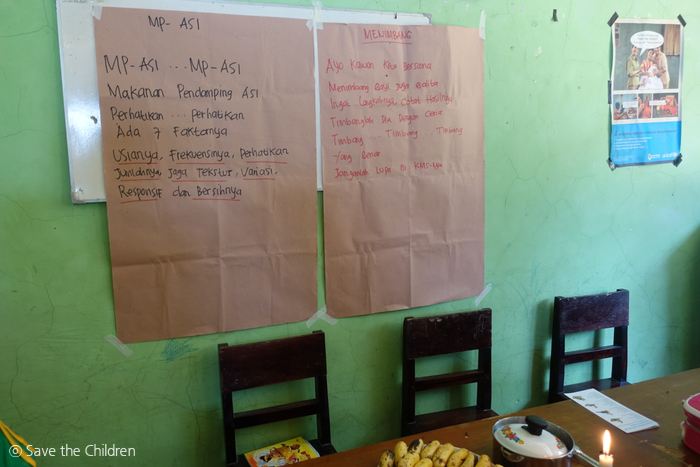 MP-ASI
MP-ASI ... MP-ASI
Makanan Pendamping ASI
Perhatikan ... perhatikan
Ada 7 Faktanya
Usianya, Frekuensinya, Perhatikan
Jumlahnya, Jaga Tekstur, Variasi,
Responsif dan Bersihnya
MENIMBANG
Ayo Kawan Kita Bersama
Menimbang Bayi juga Balita
Ingat Langkahnya, Catat Hasilnya
Timbanglah Dia Dengan Benar
Timbang ... Timbang ... Timbang
Yang Benar
Janganlah Lupa Di KMS-nya
© Save the Children